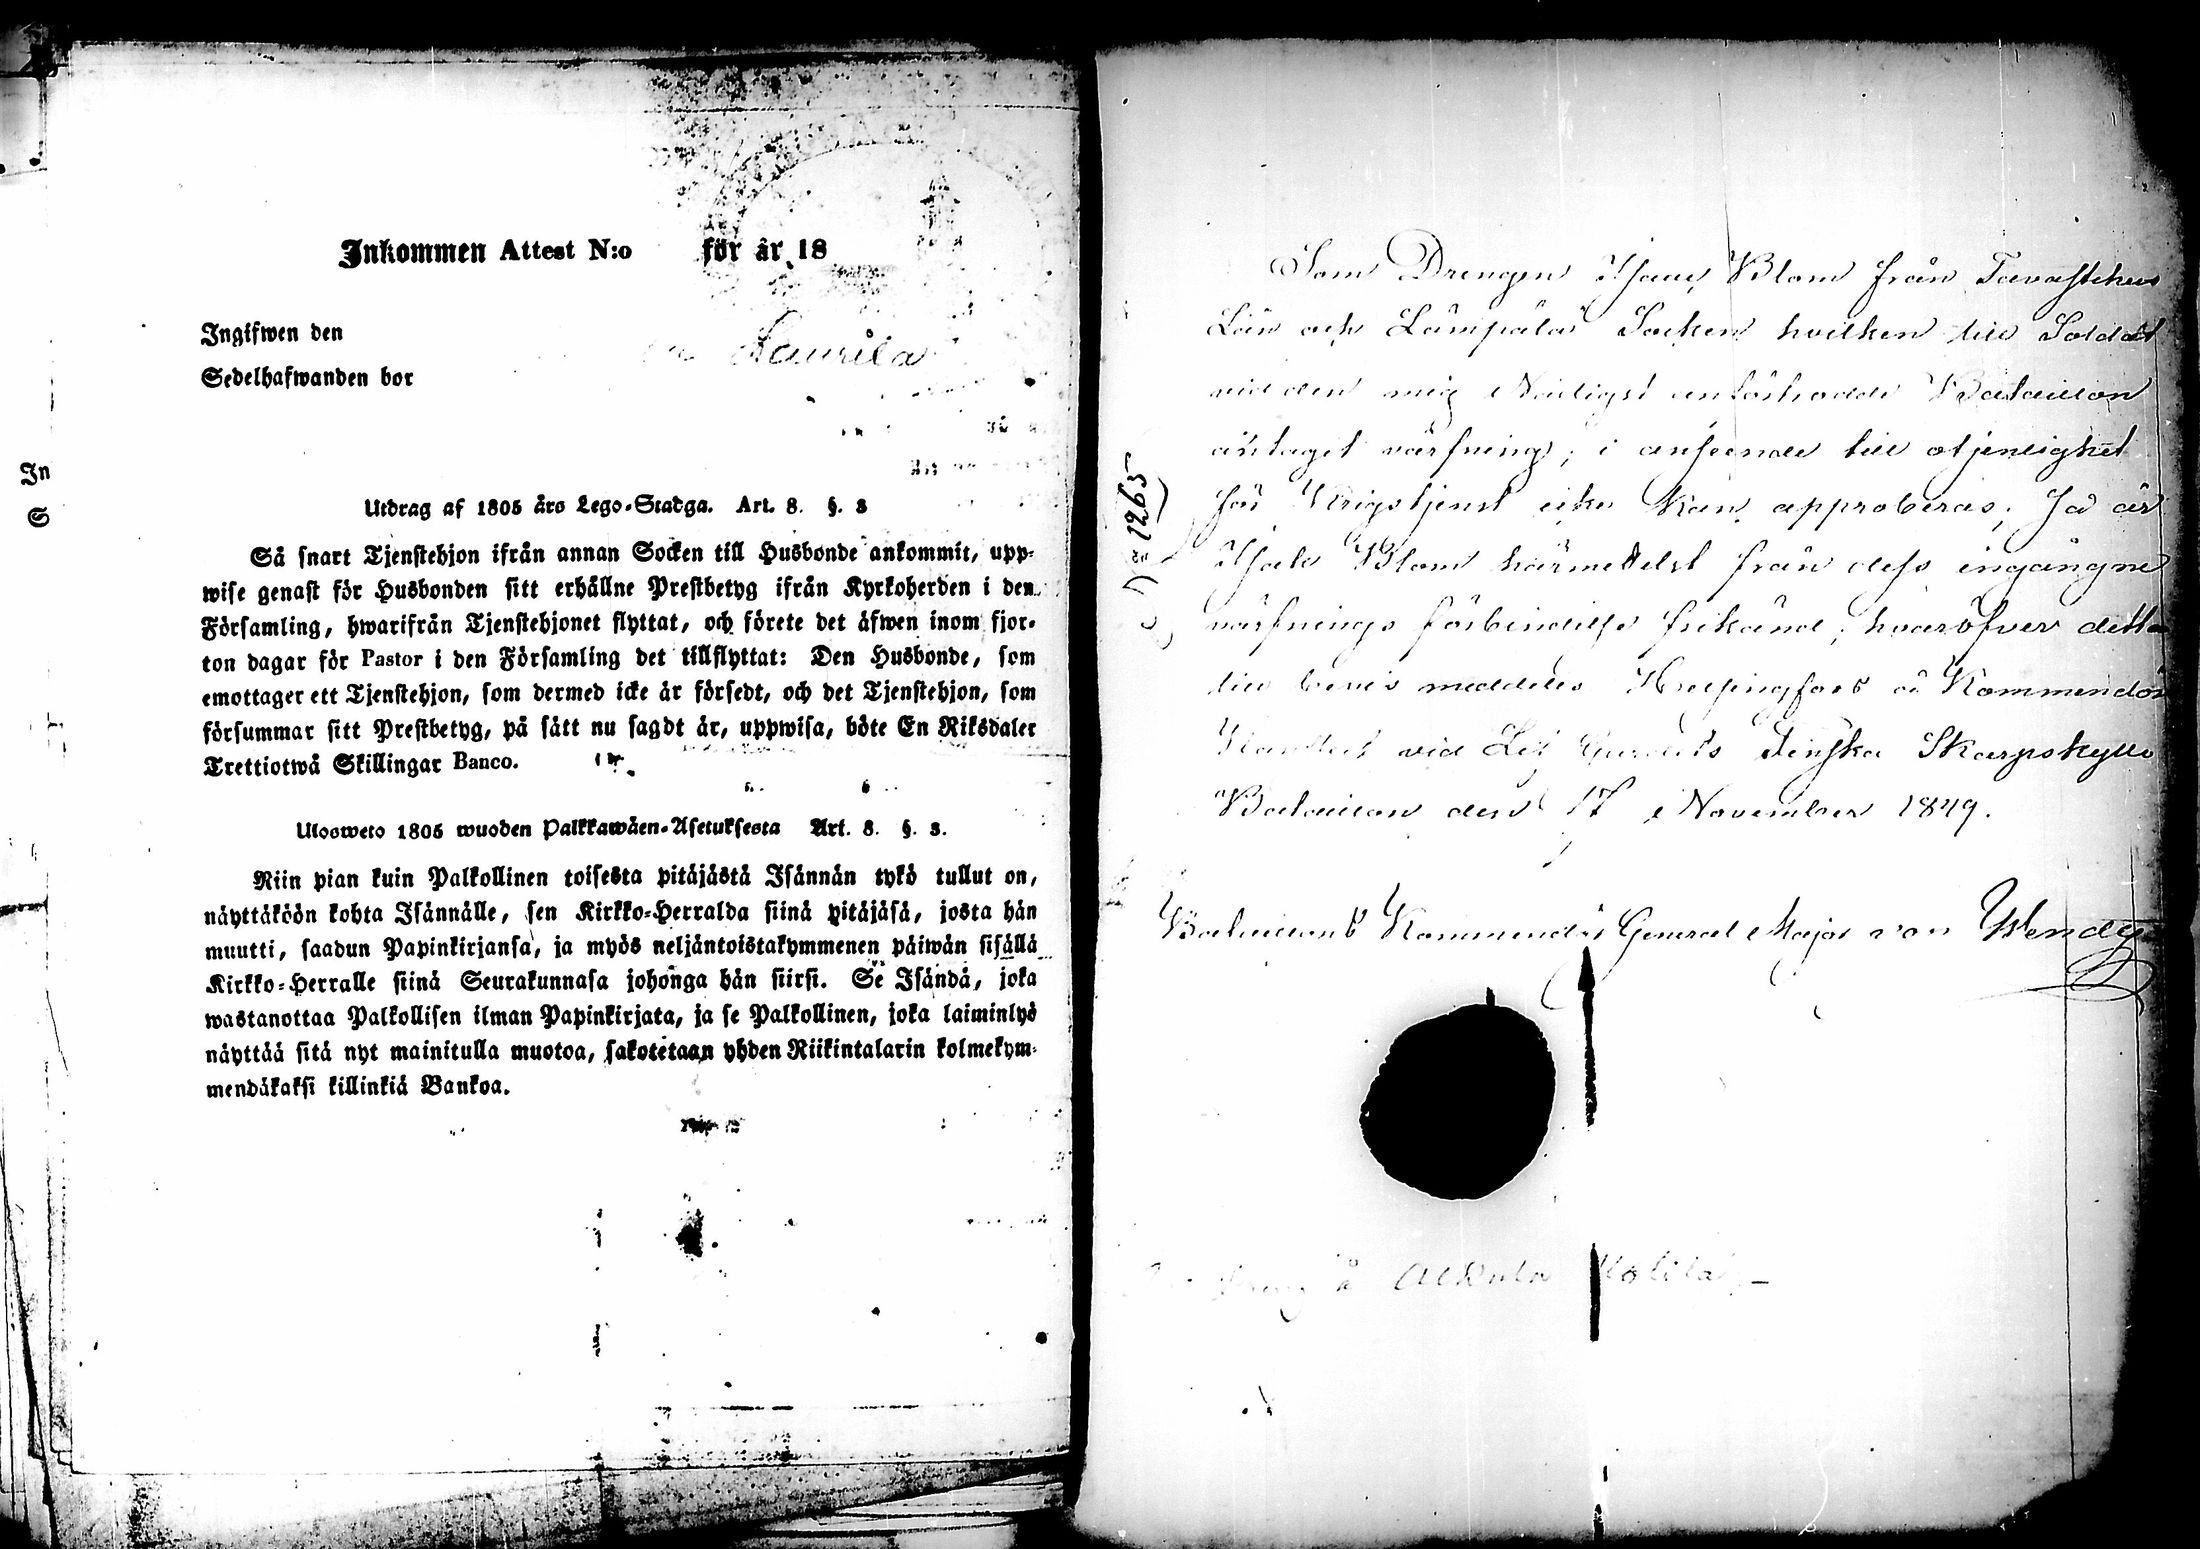 Inkommen Attest N:o för år 18
Ingifwen den
Laurila
Sedelhafwanden bor
In
S
Utdrag af 1805 års Lego-Stadga. Art. 8. §. 3
Så snart Tjenstehjon ifrån annan Socken till Husbonde ankommit, upp-
wise genast för Husbonden sitt erhållne Prestbetyg ifrån Kyrkoherden i den
Församling, hwarifrån Tjenstehjonet flyttat, och förete det äfwen inom fjor-
ton dagar för Pastor i den Församling det tillflyttat: Den Husbonde, som
emottager ett Tjenstehjon, som dermed icke är försedt, och det Tjenstehjon, som
försummar sitt Prestbetyg, på sätt nu sagdt är, uppwisa, böte En Riksdaler
Trettiotwå Skillingar Banco.
Ulosweto 1805 wuoden Palkkawäen-Asetuksesta Art. 8. §. 3.
Niin pian kuin Palkollinen toisesta pitäjästä Isännän tykö tullut on,
näyttäköön kohta Isännälle, sen Kirkko-Herralda siinä pitäjäsä, josta hän
muutti, saadun Papinkirjansa, ja myös neljäntoistakymmenen päiwän sisällä
Kirkko-Herralle siinä Seurakunnasa johonga hän siirsi. Se Isändä, joka
wastanottaa Palkollisen ilman Papinkirjata, ja se Palkollinen, joka laiminlyö
näyttää sitä nyt mainitulla muotoa, sakotetaan yhden Riikintalarin kolmekym-
mendäkaksi killinkiä Bankoa.
1265
Som Drengen Isaac Blom från Tavastehus
Län och Lampala Socken hvilken till Soldat
vid den mig Nådigst anförtrodde Bataillon
antagit värfning, i anseende till otjenlighet
för Krigstjenst icke kan approberas; så är
Isak Blom härmedelst från dess ingångne
värfnings förbindelse frikänd, hvaröfver detta
till bevis meddeles Helsingfors å Kommendörs
vid Lif Gardets Finska Skarpskytte
Bataillon den 17 November 1849.
Bataillons Kommendör General Major von Wendt
å Alkula Kolila